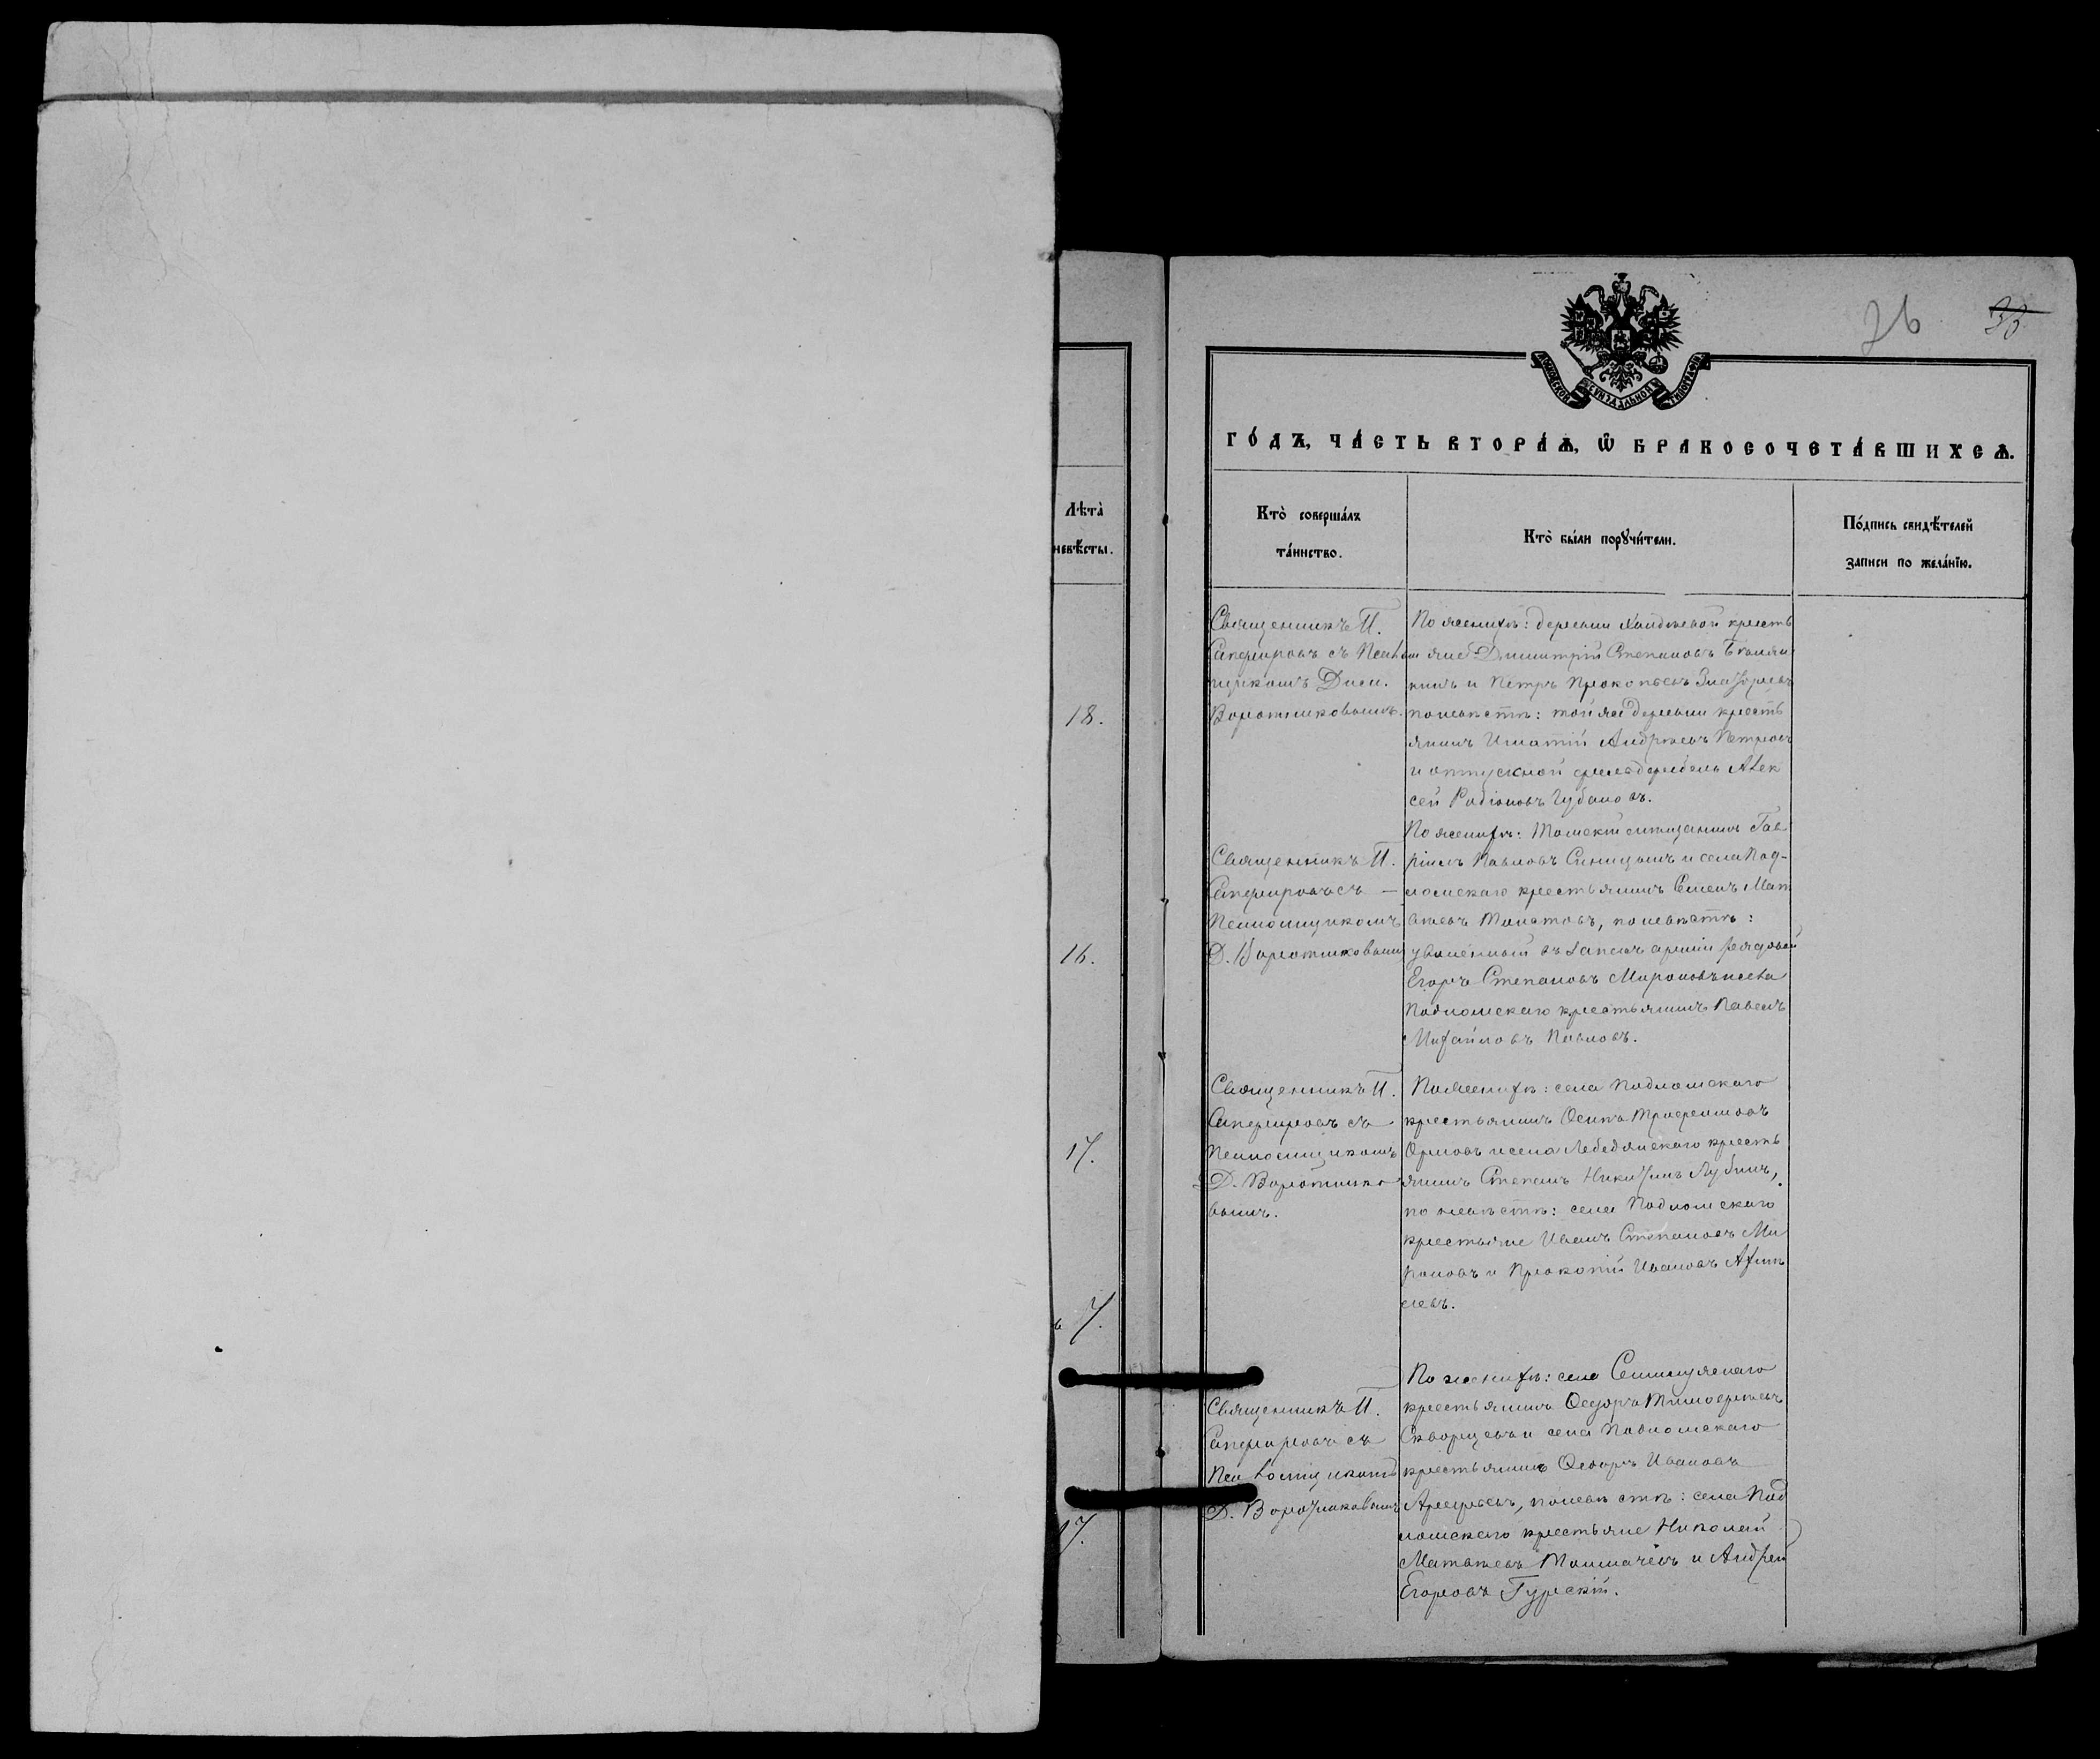 26 33
МОСКОВСКОЙ СѴНОДАЛЬНОЙ ТИПОГРАФІИ
Го́дъ, ча́сть втора́ѧ, ѡ҆ бракосочета́вшихсѧ.
Лѣта̀
невѣ́сты.
Кто̀ соверша́лъ
та́инство.
Кто̀ бы́ли порꙋчи́тели.
По́дпись свидѣ́телей
за́писи по жела́нїю.
18.
16.
17.
17.
17.
Священникъ П.
Сапфировъ съ Псалом
щикомъ Дим.
Воротниковымъ.
По женихѣ: деревни крестъ
яне Димитрій Степановъ
и Петръ Прокопьевъ
по невѣстѣ: той же деревни кресть
янинъ Игнатій Андреевъ Петровъ
и отпускной фельдфебель Алек
сей Радіоновъ Губановъ.
Священникъ П.
Сапфировъ съ —
Псаломщикомъ
Д. Воротниковымъ
По женихѣ: Томскій мѣщанинъ Гав
ріилъ Павловъ Синицынъ и села Под-
ломскаго крестьянинъ Семенъ Мат
вѣевъ Толстовъ, по невѣстѣ:
уволенный въ запасъ арміи рядовой
Егоръ Степановъ Мироновъ и села
Подломскаго крестьянинъ Павелъ
Михайловъ Павловъ.
Священникъ П.
Сапфировъ съ
Псаломщикомъ
Д. Воротнико
вымъ.
По женихѣ: села Подломскаго
крестьянинъ Осипъ Трофимовъ
Орловъ и села Лебедянскаго кресть
янинъ Степанъ Никитинъ Лубинъ,
по невѣстѣ: села Подломскаго
крестьяне Иванъ Степановъ Ми
роновъ и Прокопій Ивановъ
Священникъ П.
Сапфировъ съ
Псаломщикомъ
Д. Воротниковымъ
По женихѣ: села
крестьянинъ Ѳедоръ Тимофеевъ
Скворцевъ и села Подломскаго
крестьянинъ Ѳедоръ Ивановъ
Арефьевъ, по невѣстѣ: села Под
ломскаго крестьяне Николай
Матвѣевъ Толмачёвъ и Андрей
Егоровъ Гурскій.